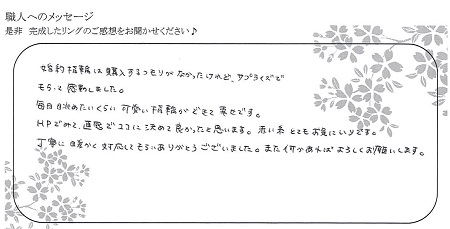 職人へのメッセージ
是非 完成したリングのご感想をお聞かせください♪
婚約指輪は購入するつもりがなかったけれど、サプライズで
もらって感動しました。
毎日眺めたいくらい可愛い指輪ができて幸せです。
HPでみて、直感でココに決めて良かったと思います。赤い糸 とてもお気にいりです。
丁寧に温かく対応してもらいありがとうございました。また何かあればよろしくお願いします。